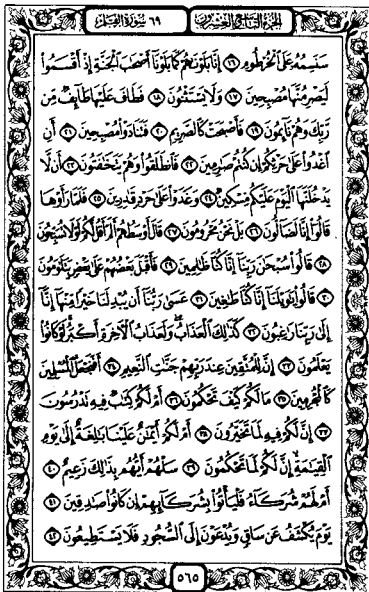 الجزء التاسع والعشرون ٦٩ سورة القلم
سَنَسِمُهُ عَلَى الْخُرْطُومِ ١٦ إِنَّا بَلَوْنَاهُمْ كَمَا بَلَوْنَا أَصْحَابَ الْجَنَّةِ إِذْ أَقْسَمُوا
لَيَصْرِمُنَّهَا مُصْبِحِينَ ١٧ وَلَا يَسْتَثْنُونَ ١٨ فَطَافَ عَلَيْهَا طَائِفٌ مِّن
رَّبِّكَ وَهُمْ نَائِمُونَ ١٩ فَأَصْبَحَتْ كَالصَّرِيمِ ٢٠ فَتَنَادَوْا مُصْبِحِينَ ٢١ أَنِ
اغْدُوا عَلَى حَرْثِكُمْ إِن كُنتُمْ صَارِمِينَ ٢٢ فَانطَلَقُوا وَهُمْ يَتَخَافَتُونَ ٢٣ أَن لَّا
يَدْخُلَنَّهَا الْيَوْمَ عَلَيْكُم مِّسْكِينٌ ٢٤ وَغَدَوْا عَلَى حَرْدٍ قَادِرِينَ ٢٥ فَلَمَّا رَأَوْهَا
قَالُوا إِنَّا لَضَالُّونَ ٢٦ بَلْ نَحْنُ مَحْرُومُونَ ٢٧ قَالَ أَوْسَطُهُمْ أَلَمْ أَقُل لَّكُمْ لَوْلَا تُسَبِّحُونَ
٢٨ قَالُوا سُبْحَانَ رَبِّنَا إِنَّا كُنَّا ظَالِمِينَ ٢٩ فَأَقْبَلَ بَعْضُهُمْ عَلَى بَعْضٍ يَتَلَاوَمُونَ
٣٠ قَالُوا يَا وَيْلَنَا إِنَّا كُنَّا طَاغِينَ ٣١ عَسَى رَبُّنَا أَن يُبْدِلَنَا خَيْرًا مِّنْهَا إِنَّا
إِلَى رَبِّنَا رَاغِبُونَ ٣٢ كَذَلِكَ الْعَذَابُ وَلَعَذَابُ الْآخِرَةِ أَكْبَرُ لَوْ كَانُوا
يَعْلَمُونَ ٣٣ إِنَّ لِلْمُتَّقِينَ عِندَ رَبِّهِمْ جَنَّاتِ النَّعِيمِ ٣٤ أَفَنَجْعَلُ الْمُسْلِمِينَ
كَالْمُجْرِمِينَ ٣٥ مَا لَكُمْ كَيْفَ تَحْكُمُونَ ٣٦ أَمْ لَكُمْ كِتَابٌ فِيهِ تَدْرُسُونَ
٣٧ إِنَّ لَكُمْ فِيهِ لَمَا تَخَيَّرُونَ ٣٨ أَمْ لَكُمْ أَيْمَانٌ عَلَيْنَا بَالِغَةٌ إِلَى يَوْمِ
الْقِيَامَةِ إِنَّ لَكُمْ لَمَا تَحْكُمُونَ ٣٩ سَلْهُمْ أَيُّهُم بِذَلِكَ زَعِيمٌ ٤٠
أَمْ لَهُمْ شُرَكَاءُ فَلْيَأْتُوا بِشُرَكَائِهِمْ إِن كَانُوا صَادِقِينَ ٤١
يَوْمَ يُكْشَفُ عَن سَاقٍ وَيُدْعَوْنَ إِلَى السُّجُودِ فَلَا يَسْتَطِيعُونَ ٤٢
٥٦٥